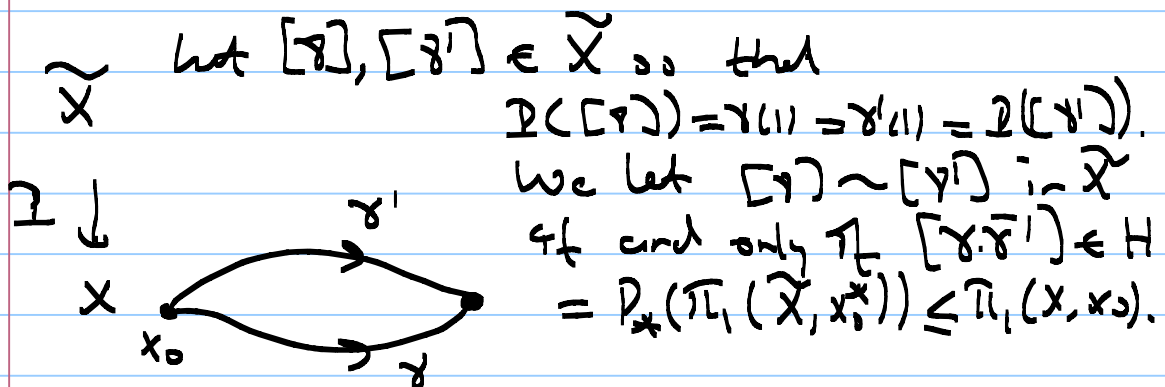 Let [γ], [γ'] ∈ X̃ so that
X̃
P([γ]) = γ(1) = γ'(1) = P([γ']).
We let [γ] ~ [γ'] in X̃
P ↓
γ'
if and only if [γ·γ̄'] ∈ H
X
= P_*(π₁(X̃, x₀*)) ≤ π₁(X, x₀).
x₀
γ